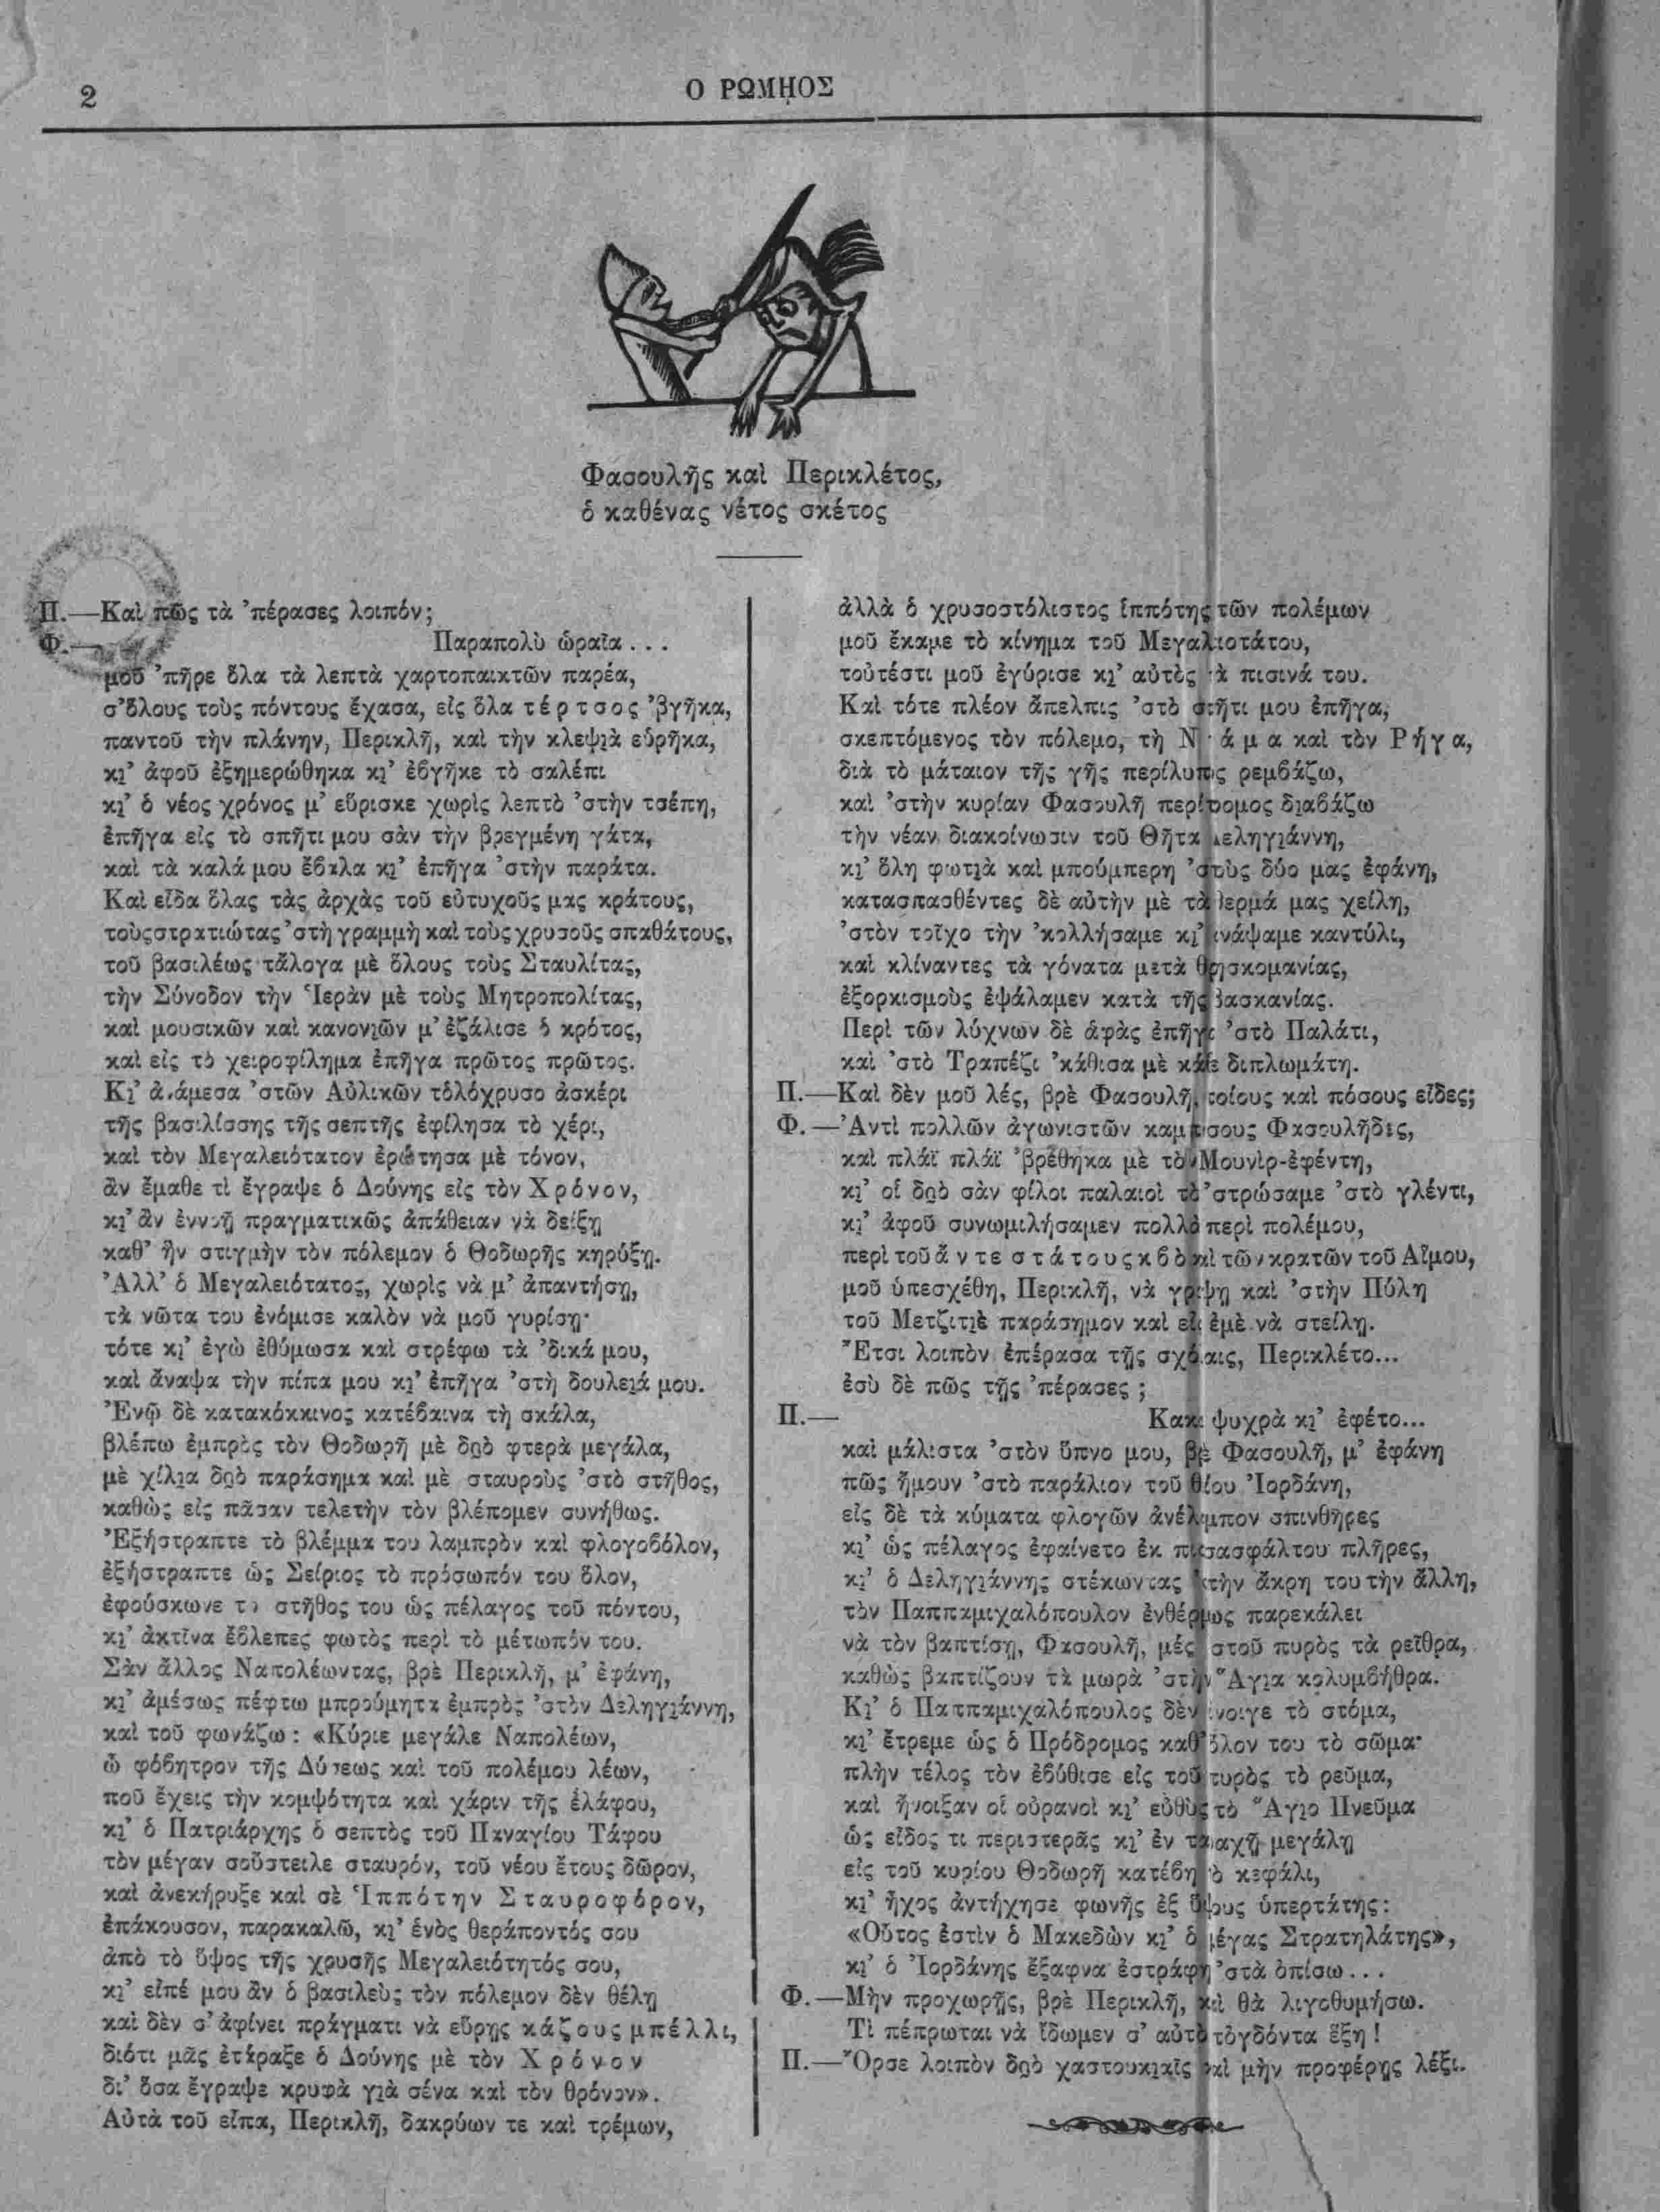 2
Ο ΡΩΜΗΟΣ
Φασουλῆς καὶ Περικλέτος,
ὁ καθένας νέτος σκέτος
Π.—Καὶ πῶς τὰ ’πέρασες λοιπόν;
Φ.— Παραπολὺ ὡραῖα...
μοῦ ’πῆρε ὅλα τὰ λεπτὰ χαρτοπαικτῶν παρέα,
σ’ὅλους τοὺς πόντους ἔχασα, εἰς ὅλα τέρτσος ’βγῆκα,
παντοῦ τὴν πλάνην, Περικλῆ, καὶ τὴν κλεψιὰ εὑρῆκα,
κι’ ἀφοῦ ἐξημερώθηκα κι’ ἐβγῆκε τὸ σαλέπι
κι’ ὁ νέος χρόνος μ’ εὕρισκε χωρὶς λεπτὸ ’στὴν τσέπη,
ἐπῆγα εἰς τὸ σπῆτι μου σὰν τὴν βρεγμένη γάτα,
καὶ τὰ καλά μου ἔβαλα κι’ ἐπῆγα ’στὴν παράτα.
Καὶ εἶδα ὅλας τὰς ἀρχὰς τοῦ εὐτυχοῦς μας κράτους,
τοὺς στρατιώτας ’στὴ γραμμὴ καὶ τοὺς χρυσοῦς σπαθάτους,
τοῦ βασιλέως τἄλογα μὲ ὅλους τοὺς Σταυλίτας,
τὴν Σύνοδον τὴν Ἱερὰν μὲ τοὺς Μητροπολίτας,
καὶ μουσικῶν καὶ κανονιῶν μ’ ἐζάλισε ὁ κρότος,
καὶ εἰς τὸ χειροφίλημα ἐπῆγα πρῶτος πρῶτος.
Κι’ ἀνάμεσα ’στῶν Αὐλικῶν τὁλόχρυσο ἀσκέρι
τῆς βασιλίσσης τῆς σεπτῆς ἐφίλησα τὸ χέρι,
καὶ τὸν Μεγαλειότατον ἐρώτησα μὲ τόνον,
ἂν ἔμαθε τὶ ἔγραψε ὁ Δούνης εἰς τὸν Χρόνον,
κι’ ἂν ἐννοῇ πραγματικῶς ἀπάθειαν νὰ δείξῃ
καθ’ ἣν στιγμὴν τὸν πόλεμον ὁ Θοδωρῆς κηρύξῃ.
Ἀλλ’ ὁ Μεγαλειότατος, χωρὶς νὰ μ’ ἀπαντήσῃ,
τὰ νῶτα του ἐνόμισε καλὸν νὰ μοῦ γυρίσῃ·
τότε κι’ ἐγὼ ἐθύμωσα καὶ στρέφω τὰ ’δικά μου,
καὶ ἄναψα τὴν πίπα μου κι’ ἐπῆγα ’στὴ δουλειά μου.
Ἐνῷ δὲ κατακόκκινος κατέβαινα τὴ σκάλα,
βλέπω ἐμπρὸς τὸν Θοδωρῆ μὲ δυὸ φτερὰ μεγάλα,
μὲ χίλια δυὸ παράσημα καὶ μὲ σταυροὺς ’στὸ στῆθος,
καθὼς εἰς πᾶσαν τελετὴν τὸν βλέπομεν συνήθως.
Ἐξήστραπτε τὸ βλέμμα του λαμπρὸν καὶ φλογοβόλον,
ἐξήστραπτε ὡς Σείριος τὸ πρόσωπόν του ὅλον,
ἐφούσκωνε τὸ στῆθος του ὡς πέλαγος τοῦ πόντου,
κι’ ἀκτῖνα ἔβλεπες φωτὸς περὶ τὸ μέτωπόν του.
Σὰν ἄλλος Ναπολέωντας, βρὲ Περικλῆ, μ’ ἐφάνη,
κι’ ἀμέσως πέφτω μπρούμητα ἐμπρὸς ’στὸν Δεληγιάννη,
καὶ τοῦ φωνάζω: «Κύριε μεγάλε Ναπολέων,
ὦ φόβητρον τῆς Δύσεως καὶ τοῦ πολέμου λέων,
ποῦ ἔχεις τὴν κομψότητα καὶ χάριν τῆς ἐλάφου,
κι’ ὁ Πατριάρχης ὁ σεπτὸς τοῦ Παναγίου Τάφου
τὸν μέγαν σοὔστειλε σταυρόν, τοῦ νέου ἔτους δῶρον,
καὶ ἀνεκήρυξε καὶ σὲ Ἱππότην Σταυροφόρον,
ἐπάκουσον, παρακαλῶ, κι’ ἑνὸς θεράποντός σου
ἀπὸ τὸ ὕψος τῆς χρυσῆς Μεγαλειότητός σου,
κι’ εἰπέ μου ἂν ὁ βασιλεὺς τὸν πόλεμον δὲν θέλῃ
καὶ δὲν σ’ ἀφίνει πράγματι νὰ εὕρῃς κάζους μπέλλι,
διότι μᾶς ἐτάραξε ὁ Δούνης μὲ τὸν Χρόνον
δι’ ὅσα ἔγραψε κρυφὰ γιὰ σένα καὶ τὸν θρόνον».
Αὐτὰ τοῦ εἶπα, Περικλῆ, δακρύων τε καὶ τρέμων,
ἀλλὰ ὁ χρυσοστόλιστος ἱππότης τῶν πολέμων
μοῦ ἔκαμε τὸ κίνημα τοῦ Μεγαλειοτάτου,
τοὐτέστι μοῦ ἐγύρισε κι’ αὐτὸς τὰ πισινά του.
Καὶ τότε πλέον ἄπελπις ’στὸ σπῆτι μου ἐπῆγα,
σκεπτόμενος τὸν πόλεμο, τὴ Ντάμα καὶ τὸν Ρήγα,
διὰ τὸ μάταιον τῆς γῆς περίλυπος ρεμβάζω,
καὶ ’στὴν κυρίαν Φασουλῆ περίτρομος διαβάζω
τὴν νέαν διακοίνωσιν τοῦ Θῆτα Δεληγιάννη,
κι’ ὅλη φωτιὰ καὶ μπούμπερη ’στοὺς δύο μας ἐφάνη,
κατασπασθέντες δὲ αὐτὴν μὲ τὰ θερμά μας χείλη,
’στὸν τοῖχο τὴν ’κολλήσαμε κι’ ἀνάψαμε καντύλι,
καὶ κλίναντες τὰ γόνατα μετὰ θρησκομανίας,
ἐξορκισμοὺς ἐψάλαμεν κατὰ τῆς βασκανίας.
Περὶ τῶν λύχνων δὲ ἁφὰς ἐπῆγα ’στὸ Παλάτι,
καὶ ’στὸ Τραπέζι ’κάθισα μὲ κάθε διπλωμάτη.
Π.—Καὶ δὲν μοῦ λές, βρὲ Φασουλῆ, ποίους καὶ πόσους εἶδες;
Φ.—Ἀντὶ πολλῶν ἀγωνιστῶν καμπόσους Φασουλῆδες,
καὶ πλάϊ πλάϊ ’βρέθηκα μὲ τὸν Μουνὶρ-ἐφέντη,
κι’ οἱ δυὸ σὰν φίλοι παλαιοὶ τὸ ’στρώσαμε ’στὸ γλέντι,
κι’ ἀφοῦ συνωμιλήσαμεν πολλὰ περὶ πολέμου,
περὶ τοῦ ἄντε στάτους κβὸ καὶ τῶν κρατῶν τοῦ Αἵμου,
μοῦ ὑπεσχέθη, Περικλῆ, νὰ γράψῃ καὶ ’στὴν Πόλη
τοῦ Μετζιτιὲ παράσημον καὶ εἰς ἐμὲ νὰ στείλῃ.
Ἔτσι λοιπὸν ἐπέρασα τῇς σχόλαις, Περικλέτο...
ἐσὺ δὲ πῶς τῇς ’πέρασες;
Π.— Κακὰ ψυχρὰ κι’ ἐφέτο...
καὶ μάλιστα ’στὸν ὕπνο μου, βρὲ Φασουλῆ, μ’ ἐφάνη
πῶς ἤμουν ’στὸ παράλιον τοῦ θείου Ἰορδάνη,
εἰς δὲ τὰ κύματα φλογῶν ἀνέλαμπον σπινθῆρες
κι’ ὡς πέλαγος ἐφαίνετο ἐκ πισσασφάλτου πλῆρες,
κι’ ὁ Δεληγιάννης στέκωντας ’στὴν ἄκρη του τὴν ἄλλη,
τὸν Παππαμιχαλόπουλον ἐνθέρμως παρεκάλει
νὰ τὸν βαπτίσῃ, Φασουλῆ, μὲς ’στοῦ πυρὸς τὰ ρεῖθρα,
καθὼς βαπτίζουν τὰ μωρὰ ’στὴν Ἅγια κολυμβήθρα.
Κι’ ὁ Παππαμιχαλόπουλος δὲν ἄνοιγε τὸ στόμα,
κι’ ἔτρεμε ὡς ὁ Πρόδρομος καθ’ ὅλον του τὸ σῶμα·
πλὴν τέλος τὸν ἐβύθισε εἰς τοῦ πυρὸς τὸ ρεῦμα,
καὶ ἤνοιξαν οἱ οὐρανοὶ κι’ εὐθὺς τὸ Ἅγιο Πνεῦμα
ὡς εἶδος τι περιστερᾶς κι’ ἐν ταραχῇ μεγάλῃ
εἰς τοῦ κυρίου Θοδωρῆ κατέβη τὸ κεφάλι,
κι’ ἦχος ἀντήχησε φωνῆς ἐξ ὕψους ὑπερτάτης:
«Οὗτος ἐστὶν ὁ Μακεδὼν κι’ ὁ μέγας Στρατηλάτης»,
κι’ ὁ Ἰορδάνης ἔξαφνα ἐστράφη ’στὰ ὀπίσω...
Φ.—Μὴν προχωρῇς, βρὲ Περικλῆ, καὶ θὰ λιγοθυμήσω.
Τὶ πέπρωται νὰ ἴδωμεν σ’ αὐτὸ τὀγδόντα ἕξη!
Π.—Ὅρσε λοιπὸν δυὸ χαστουκιαῖς καὶ μὴν προφέρῃς λέξι.